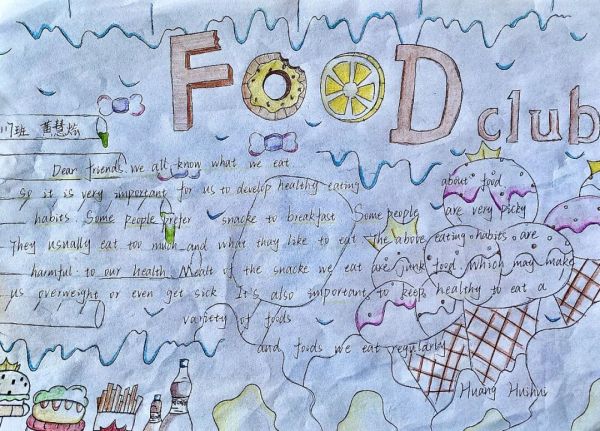 FOOD club
班 黄慧
Dear friends we all know what we eat
So it is very important for us to develop healthy eating
habits. Some people prefer snacke to breakfast Some people
about food
are very picky
They usually eat too much and what thay like to eat. The above eating habits are
harmful to our health of the snacke we eat are junk food which may make
us overweight or even get sick It's also important to keep healthy to eat a
variety of foods
and foods we eat regularly
Huang Huihui